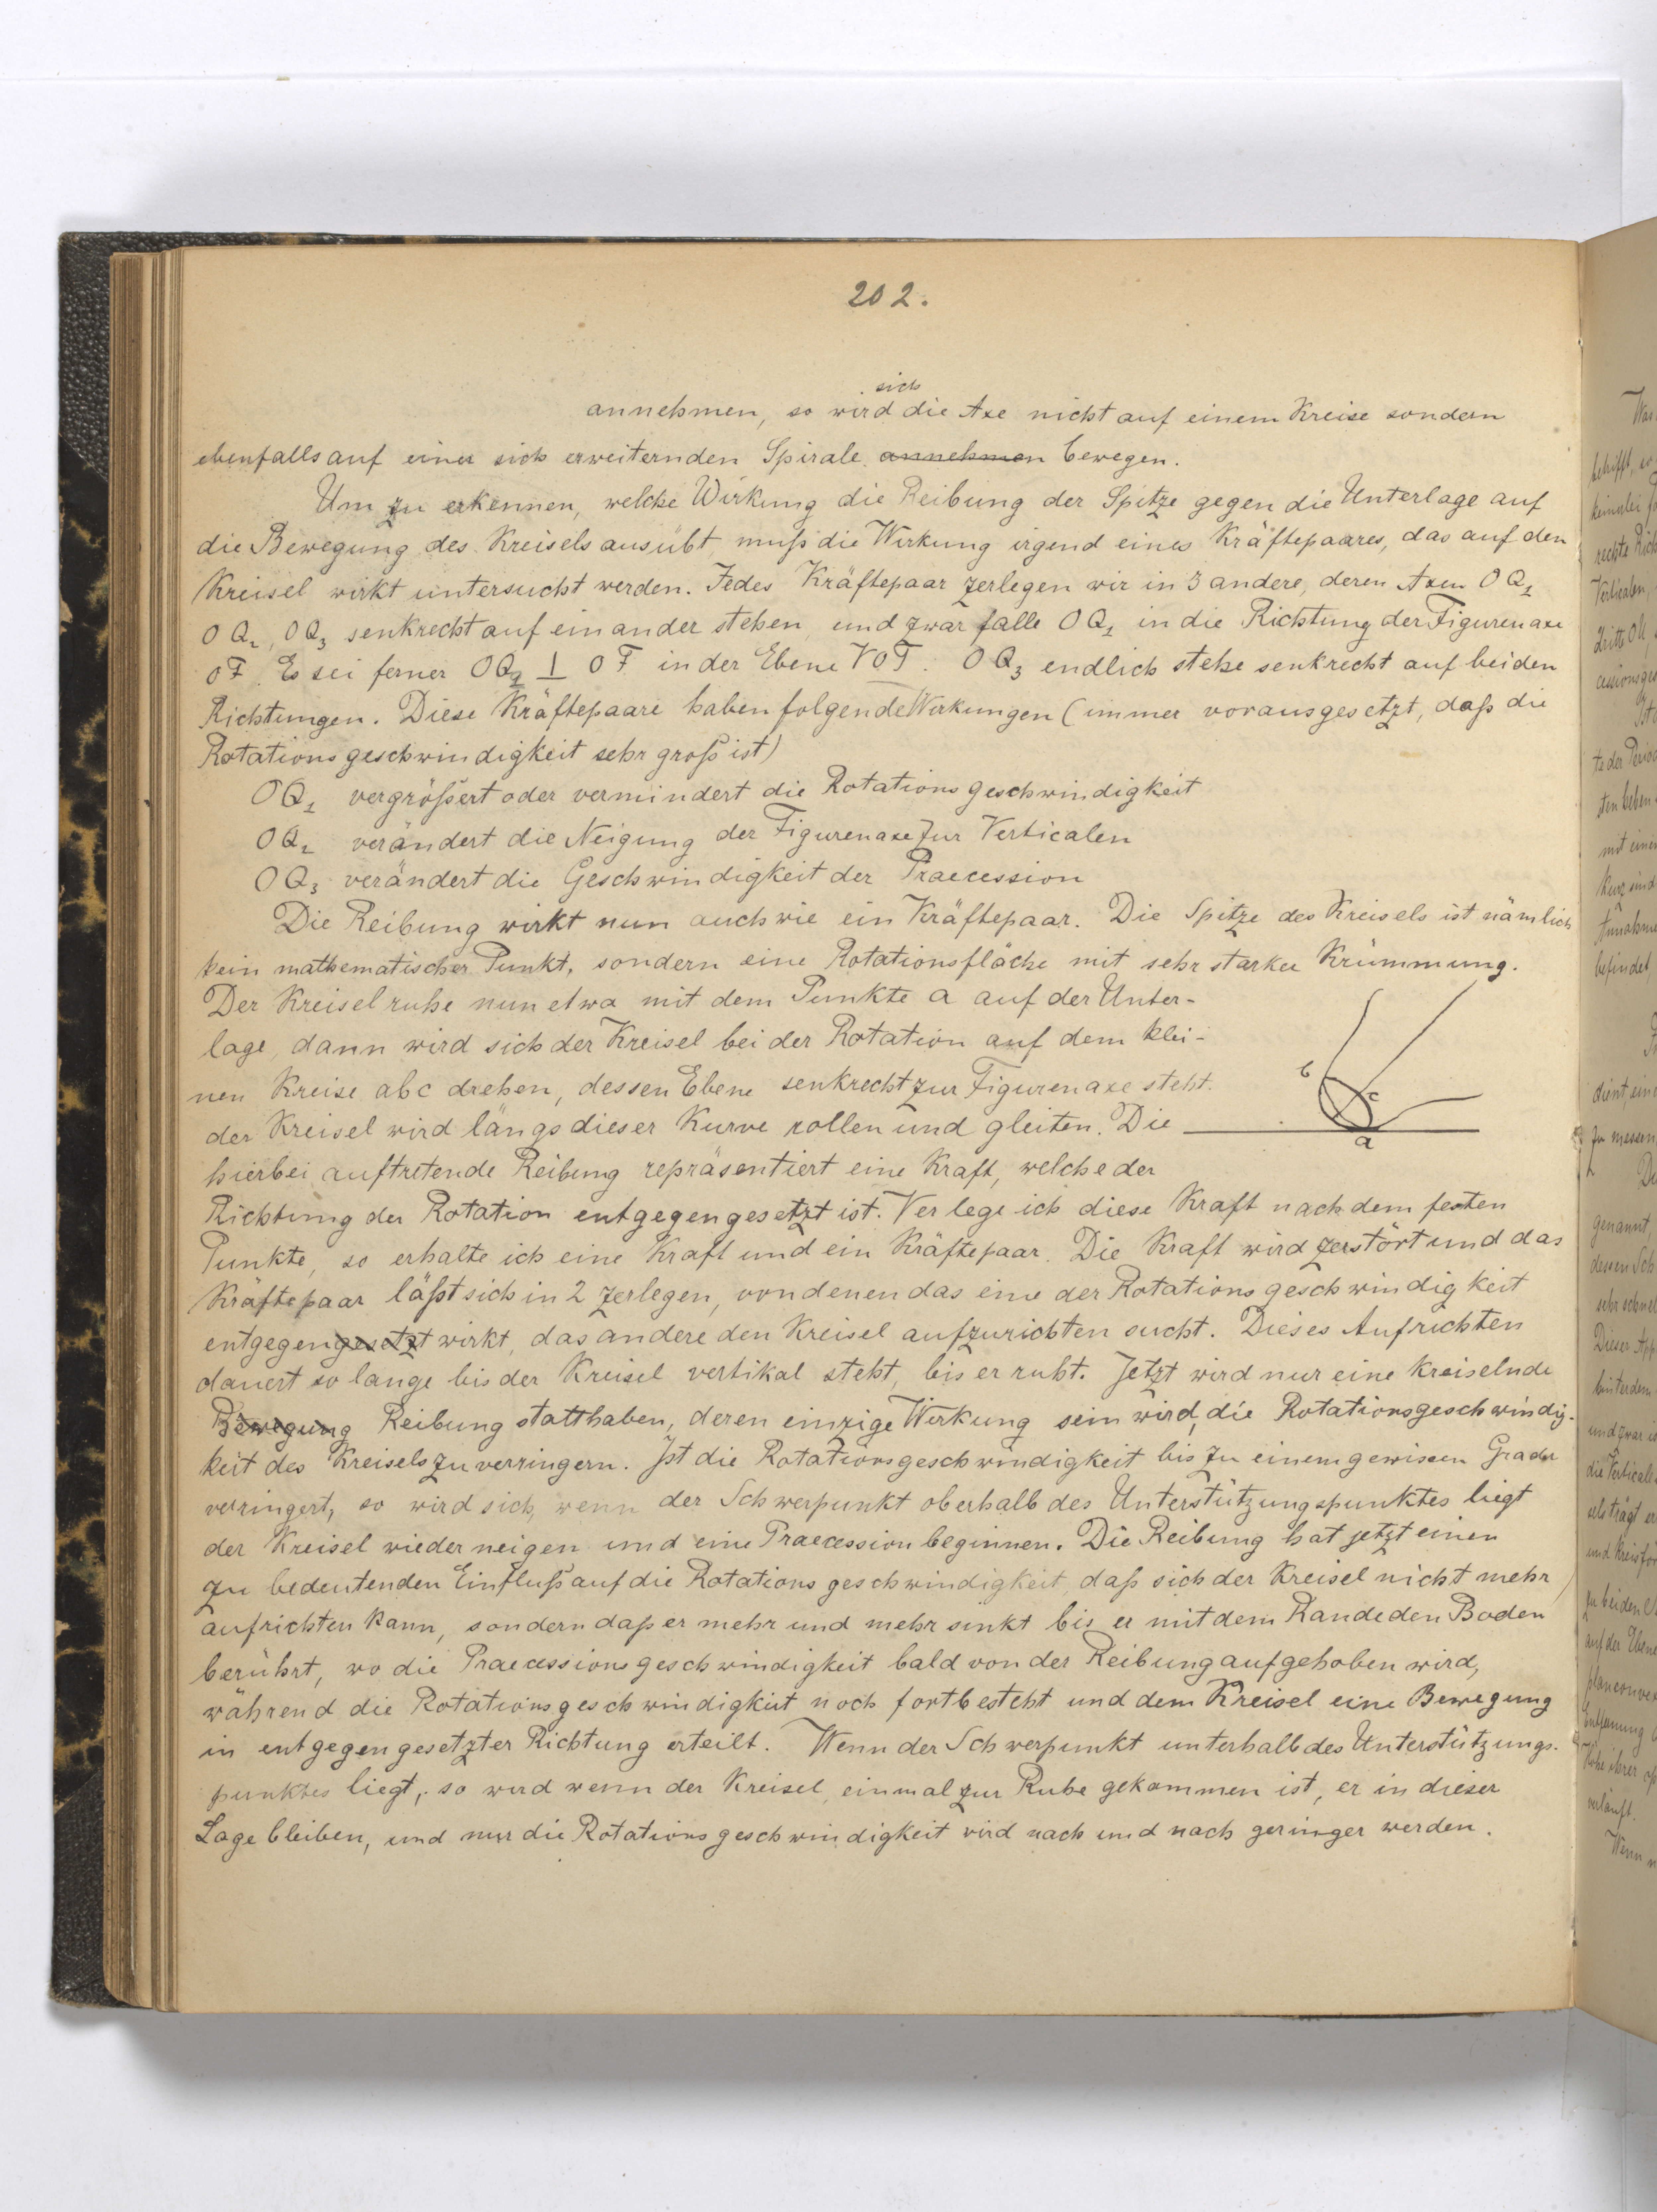 202.
sich
annehmen, so wird die Axe nicht auf einem Kreise sondern
ebenfalls auf einer sich erweiternden Spirale annehmen bewegen.
Um zu erkennen, welche Wirkung die Reibung der Spitze gegen die Unterlage auf
die Bewegung des Kreisels ausübt, muß die Wirkung irgend eines Kräftepaares, das auf den
Kreisel wirkt untersucht werden. Jedes Kräftepaar zerlegen wir in 3 andere, deren Axen OQ₁
OQ₂, OQ₃ senkrecht auf einander stehen und zwar falle OQ₁ in die Richtung der Figurenaxe
OF. Es sei ferner OQ₂ ⊥ OF in der Ebene VOF. OQ₃ endlich stehe senkrecht auf beiden
Richtungen. Diese Kräftepaare haben folgende Wirkungen (immer vorausgesetzt, daß die
Rotationsgeschwindigkeit sehr groß ist)
OQ₁ vergrößert oder vermindert die Rotationsgeschwindigkeit
OQ₂ verändert die Neigung der Figurenaxe zur Verticalen
OQ₃ verändert die Geschwindigkeit der Praecession
Die Reibung wirkt nun auch wie ein Kräftepaar. Die Spitze des Kreisels ist nämlich
kein mathematischer Punkt, sondern eine Rotationsfläche mit sehr starker Krümmung.
Der Kreisel ruhe nun etwa mit dem Punkte a auf der Unter-
lage, dann wird sich der Kreisel bei der Rotation auf dem klei-
nen Kreise abc drehen, dessen Ebene senkrecht zur Figurenaxe steht.
b
c
der Kreisel wird längs dieser Kurve rollen und gleiten. Die
a
hierbei auftretende Reibung repräsentiert eine Kraft, welche der
Richtung der Rotation entgegengesetzt ist. Verlege ich diese Kraft nach dem festen
Punkte, so erhalte ich eine Kraft und ein Kräftepaar. Die Kraft wird zerstört und das
Kräftepaar läßt sich in 2 zerlegen, von denen das eine der Rotationsgeschwindigkeit
entgegengesetzt wirkt, das andere den Kreisel aufzurichten sucht. Dieses Aufrichten
dauert so lange bis der Kreisel vertikal steht, bis er ruht. Jetzt wird nur eine kreiselnde
Bewegung Reibung statthaben, deren einzige Wirkung sein wird, die Rotationsgeschwindig-
keit des Kreisels zu verringern. Ist die Rotationsgeschwindigkeit bis zu einem gewissen Grade
verringert, so wird sich, wenn der Schwerpunkt oberhalb des Unterstützungspunktes liegt
der Kreisel wieder neigen und eine Praecession beginnen. Die Reibung hat jetzt einen
zu bedeutenden Einfluß auf die Rotationsgeschwindigkeit, daß sich der Kreisel nicht mehr
aufrichten kann, sondern daß er mehr und mehr sinkt bis er mit dem Rande den Boden
berührt, wo die Praecessionsgeschwindigkeit bald von der Reibung aufgehoben wird,
während die Rotationsgeschwindigkeit noch fortbesteht und dem Kreisel eine Bewegung
in entgegengesetzter Richtung erteilt. Wenn der Schwerpunkt unterhalb des Unterstützungs-
punktes liegt, so wird wenn der Kreisel einmal zur Ruhe gekommen ist, er in dieser
Lage bleiben, und nur die Rotationsgeschwindigkeit wird nach und nach geringer werden.